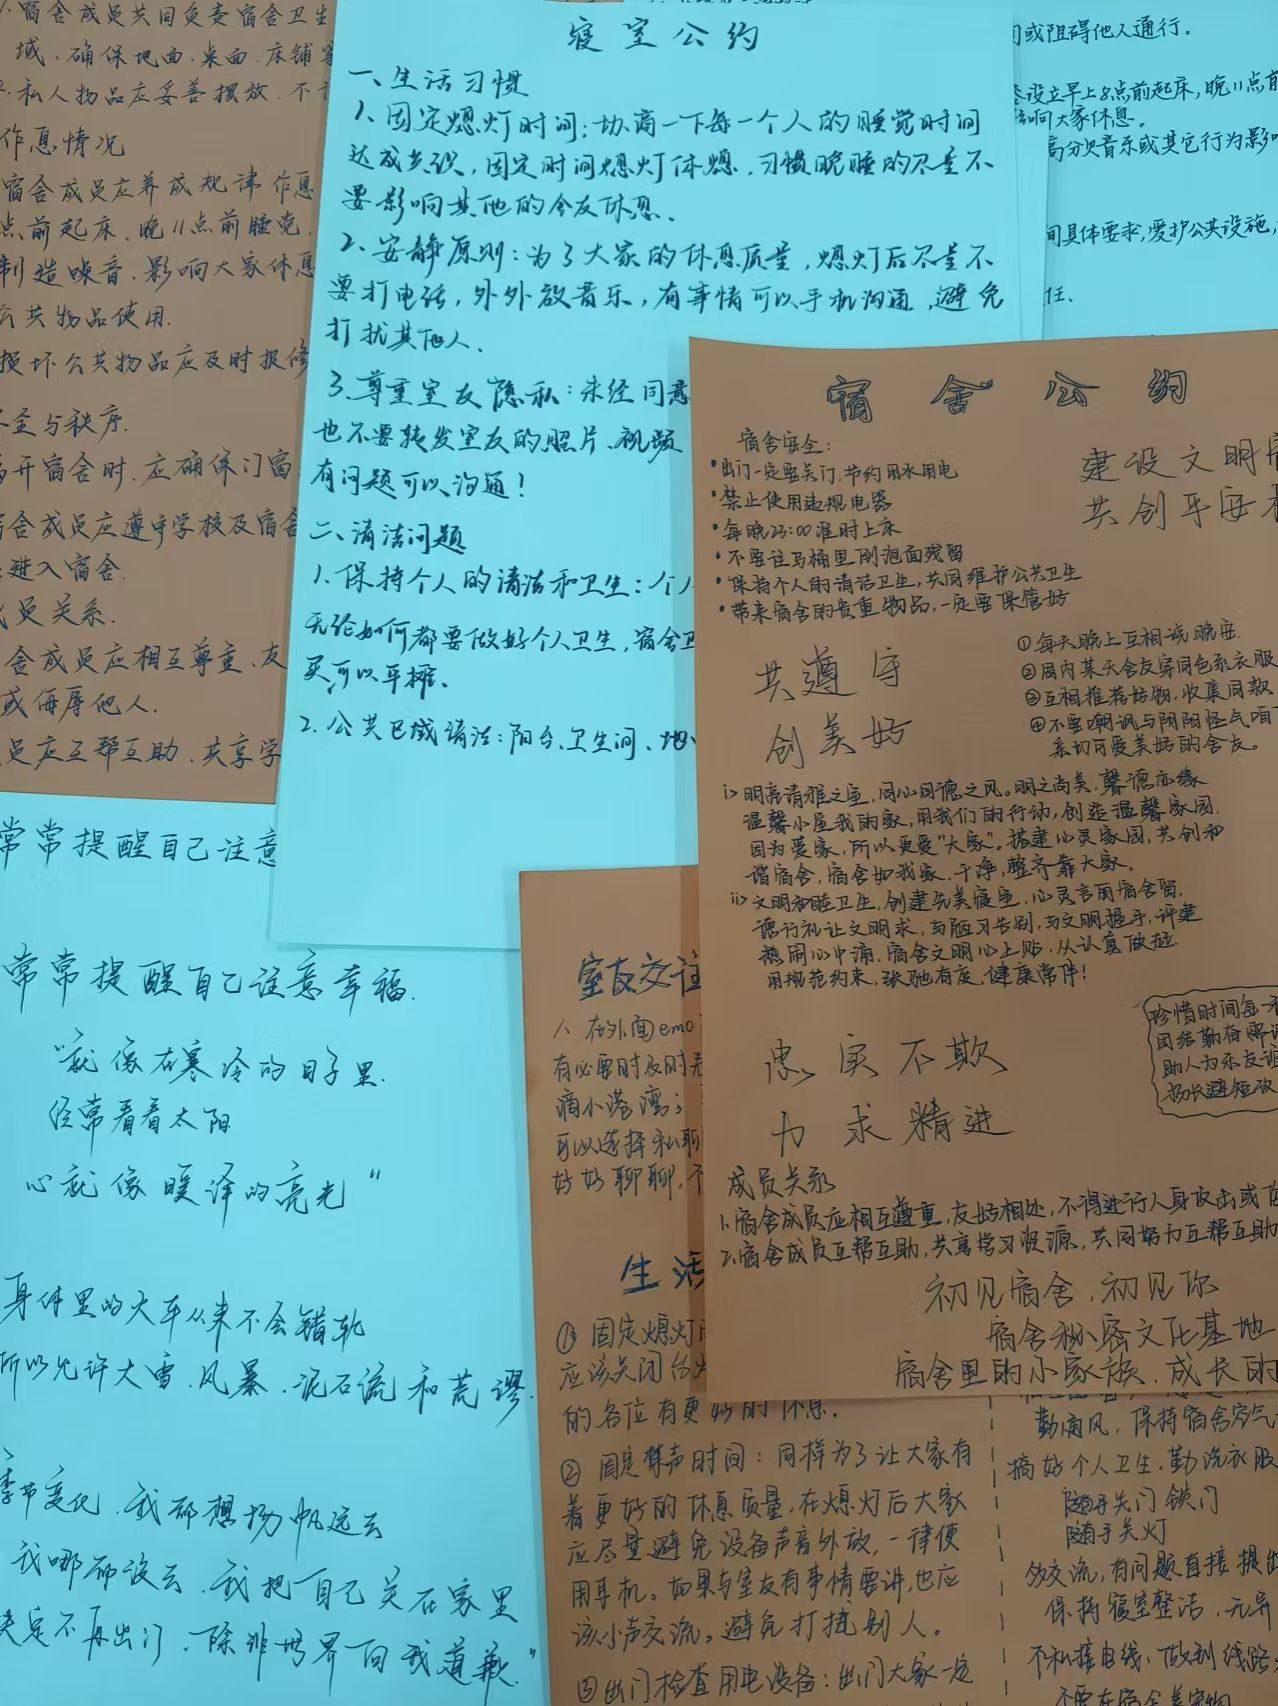 宿舍成员共同负责宿舍卫生
域、确保地面、桌面、床铺
私人物品应妥善摆放、不
作息情况
宿舍成员应养成规律作息
点前起床、晚11点前睡觉.
制造噪音、影响大家休息
公共物品使用.
损坏公共物品应及时报修
全与秩序.
开宿舍时、应确保门窗
宿舍成员应遵守学校及宿舍
进入宿舍.
成员关系.
舍成员应相互尊重、友
或侮辱他人.
员应互帮互助、共享学
寝室公约
一、生活习惯
1、固定熄灯时间:协商一下每一个人的睡觉时间
达成共识,固定时间熄灯休息,习惯晚睡的尽量不
要影响其他的舍友休息.
2、安静原则:为了大家的休息质量,熄灯后尽量不
要打电话,外外放音乐,有事情可以手机沟通,避免
打扰其他人.
3、尊重室友隐私:未经同意
也不要转发室友的照片、视频
有问题可以沟通!
二、清洁问题
1.保持个人的清洁和卫生:个人
无论如何都要做好个人卫生,宿舍卫
买可以平摊.
2.公共区域清洁:阳台、卫生间、地
或阻碍他人通行.
设立早上8点前起床,晚11点前
影响大家休息.
高分贝音乐或其它行为影响
间具体要求,爱护公共设施,
任.
宿舍公约
宿舍安全:
•出门一定要关门,节约用水用电
•禁止使用违规电器
•每晚23:00准时上床
•不要往马桶里倒泡面残留
•保持个人的清洁卫生,共同维护公共卫生
•带来宿舍的贵重物品,一定要保管好
建设文明宿
共创平安
共遵守
创美好
①每天晚上互相说晚安.
②周内某天舍友穿同色系衣服
③互相推荐好物,收集同款
④不要嘲讽与阴阳怪气咱
亲切可爱美好的舍友。
i>明亮清雅之室,同心同德之风。明之尚美,馨德亦缘
温馨小屋我的家,用我们的行动,创造温馨家园.
因为爱家,所以更爱“大家”。搭建心灵家园,共创和
谐宿舍,宿舍如我家,干净,整齐靠大家。
ii>文明和睦卫生,创建先美寝室,心灵言丽宿舍留.
德行礼让文明求,与陋习告别,与文明握手,评建
热闹心中涌,宿舍文明心上贴,从认真做起.
用规范约束,张弛有度,健康常伴!
忠实不欺
力求精进
珍惜时间每一
团结勤奋
助人为乐友谊
扬长避短改
成员关系
1.宿舍成员应相互尊重,友好相处,不得进行人身攻击或侮
2.宿舍成员互帮互助,共享学习资源,共同努力互帮互助
初见宿舍,初见你
宿舍秘密文化基地
宿舍里的小家族,成长的
常常提醒自己注意
常常提醒自己注意幸福.
“就像在寒冷的日子里.
经常看看太阳
心就像暖泽的亮光”
身体里的火车从来不会错轨
所以允许大雪、风暴、泥石流和荒谬.
季节变化、我都想扬帆远去
我哪都没去、我把自己关在家里
决定不再出门、除非世界向我道歉.”
室友交往
1、在外面emo
有必要时及时
滴小港湾;
可以选择私聊
好好聊聊,不
生活
①固定熄灯
应该关闭台灯
的各位有更好的休息.
②固定禁声时间:同样为了让大家有
着更好的休息质量,在熄灯后大家
应尽量避免设备声音外放,一律使
用耳机。如果与室友有事情要讲,也应
该小声交流。避免打扰别人。
③出门检查用电设备:出门大家一定
勤通风,保持宿舍空气
搞好个人卫生,勤洗衣服
随手关门 锁门
随手关灯
多交流,有问题直接提出
保持寝室整洁,无异
不私接电线,做到线路
不要在宿舍养宠物